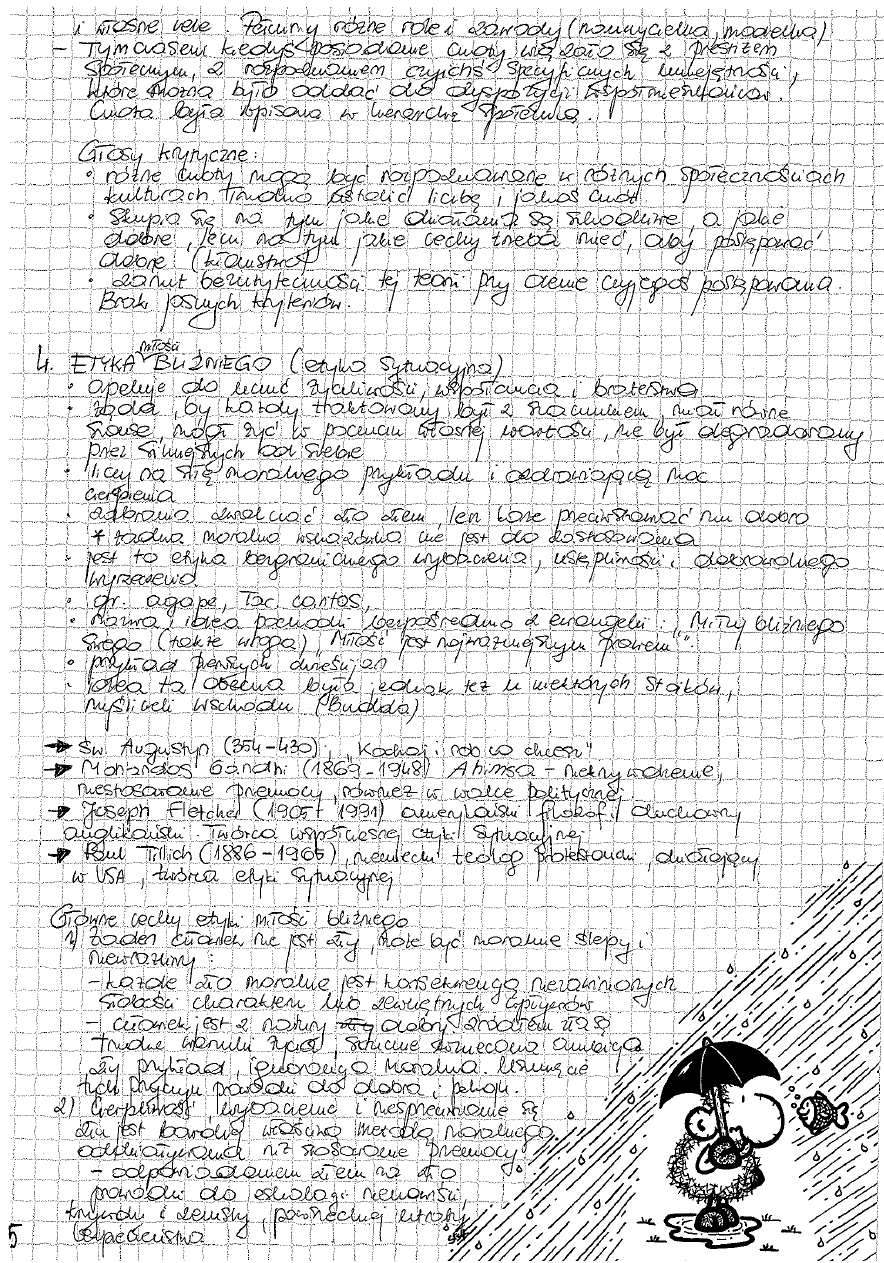 i własne cele. Pełnimy różne role i zawody (nauczycielka, modelka)
- Tymczasem kiedyś posiadanie cnoty wiązało się z prestiżem
społecznym, z rozpoznaniem czyichś specyficznych umiejętności,
które można było oddać do dyspozycji współmieszkańców.
Cnota była wpisana w hierarchię społeczną.
Głosy krytyczne:
• różne cnoty mogą być rozpoznawane w różnych społecznościach
kulturach trudno ustalić liczbę i jakoś cnót
• Skupia się na tym jakie działania są szkodliwe, a jakie
dobre, lecz na tym jakie cechy trzeba mieć, aby postępować
dobrze (kłamstwo)
• zarzut bezużyteczności tej teorii przy ocenie czyjegoś postępowania.
Brak jasnych kryteriów.
4. ETYKA miłości BLIŹNIEGO (etyka sytuacyjna)
• apeluje do uczuć życzliwości, współczucia i braterstwa
• żąda, by każdy traktowany był z szacunkiem, miał równe
szanse, mógł żyć w poczuciu własnej wartości, nie był degradowany
przez silniejszych od siebie
• liczy na siłę moralnego przykładu i uzdrawiającą moc
cierpienia
• zabrania zwalczać zło złem, lecz każe przeciwstawiać mu dobro
* żadna moralna wskazówka nie jest do zastosowania
• jest to etyka bezgranicznego wybaczenia, ustępliwości i dobrowolnego
wyrzeczenia
• gr. agape, łac. caritas,
• nazwa i idea pochodzi bezpośrednio z ewangelii: "Miłuj bliźniego
swego (także wroga), Miłość jest najważniejszym prawem".
• przykład pierwszych chrześcijan
• idea ta obecna była jednak też u niektórych stoików,
myślicieli wschodu (Budda)
→ Św. Augustyn (354-430): "Kochaj i rób co chcesz"
→ Mahandas Gandhi (1869-1948) Ahimsa - niekrzywdzenie,
niestosowanie przemocy, również w walce politycznej
→ Joseph Fletcher (1905 + 1991) amerykański filozof i duchowny
anglikański. Twórca współczesnej etyki sytuacyjnej
→ Paul Tillich (1886-1965), niemiecki teolog protestancki, działający
w USA, twórca etyki sytuacyjnej
Główne cechy etyki miłości bliźniego
1) żaden człowiek nie jest zły, może być moralnie ślepy i
niewrażliwy:
- każde zło moralne jest konsekwencją niezawinionych
słabości charakteru lub zewnętrznych wpływów
- człowiek jest z natury dobry źródłem zła są
trudne warunki życia, sztucznie wzniecana ambicja
zły przykład, ignorancja moralna. Usunięcie
tych przyczyn prowadzi do dobra i pokoju.
2) Cierpliwość, wybaczenie i niesprzeciwianie się
złu jest bardziej właściwą metodą moralnego
oddziaływania niż stosowanie przemocy
- odpowiadaniem złem na zło
prowadzi do eskalacji nienawiści,
krzywdy i zemsty, powszechnej utraty
bezpieczeństwa
5